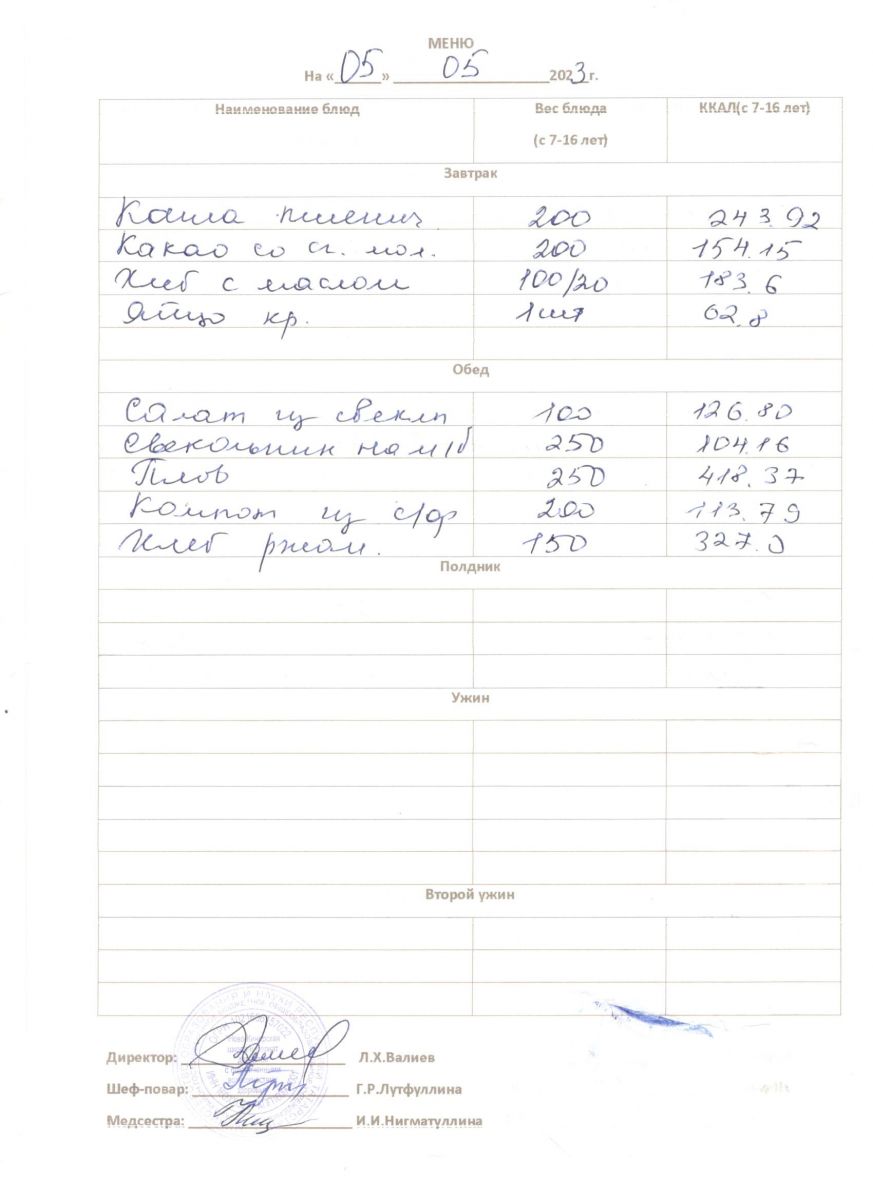 МЕНЮ
На «05» 05 2023 г.
Наименование блюд Вес блюда (с 7-16 лет) ККАЛ(с 7-16 лет)
Завтрак
Каша пшенич 200 243.92
Какао со сг. мол. 200 154.15
Хлеб с маслом 100/20 183.6
Яйцо кр. 1 шт 62.8
Обед
Салат из свеклы 100 126.80
Свекольник на м/б 250 104.16
Плов 250 418.37
Компот из с/ф 200 113.79
Хлеб ржан. 150 327.0
Полдник
Ужин
Второй ужин
Директор: Л.Х.Валиев
Шеф-повар: Г.Р.Лутфуллина
Медсестра: И.И.Нигматуллина